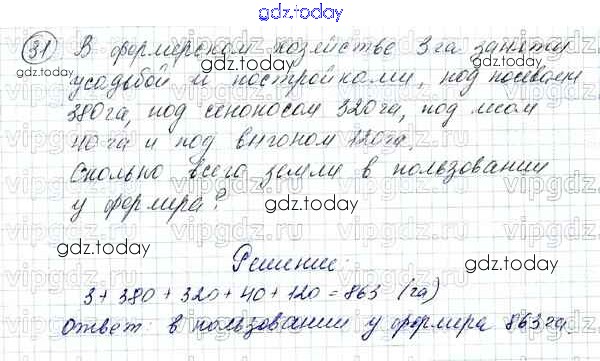 gdz.today
31 В фермерском хозяйстве 3 га заняты
усадьбой и постройками, под посевами
380 га, под сенокосом 320 га, под лесом
40 га и под выгоном 120 га.
Сколько всего земли в пользовании
у фермера?
Решение:
3 + 380 + 320 + 40 + 120 = 863 (га)
Ответ: в пользовании у фермера 863 га.
gdz.today